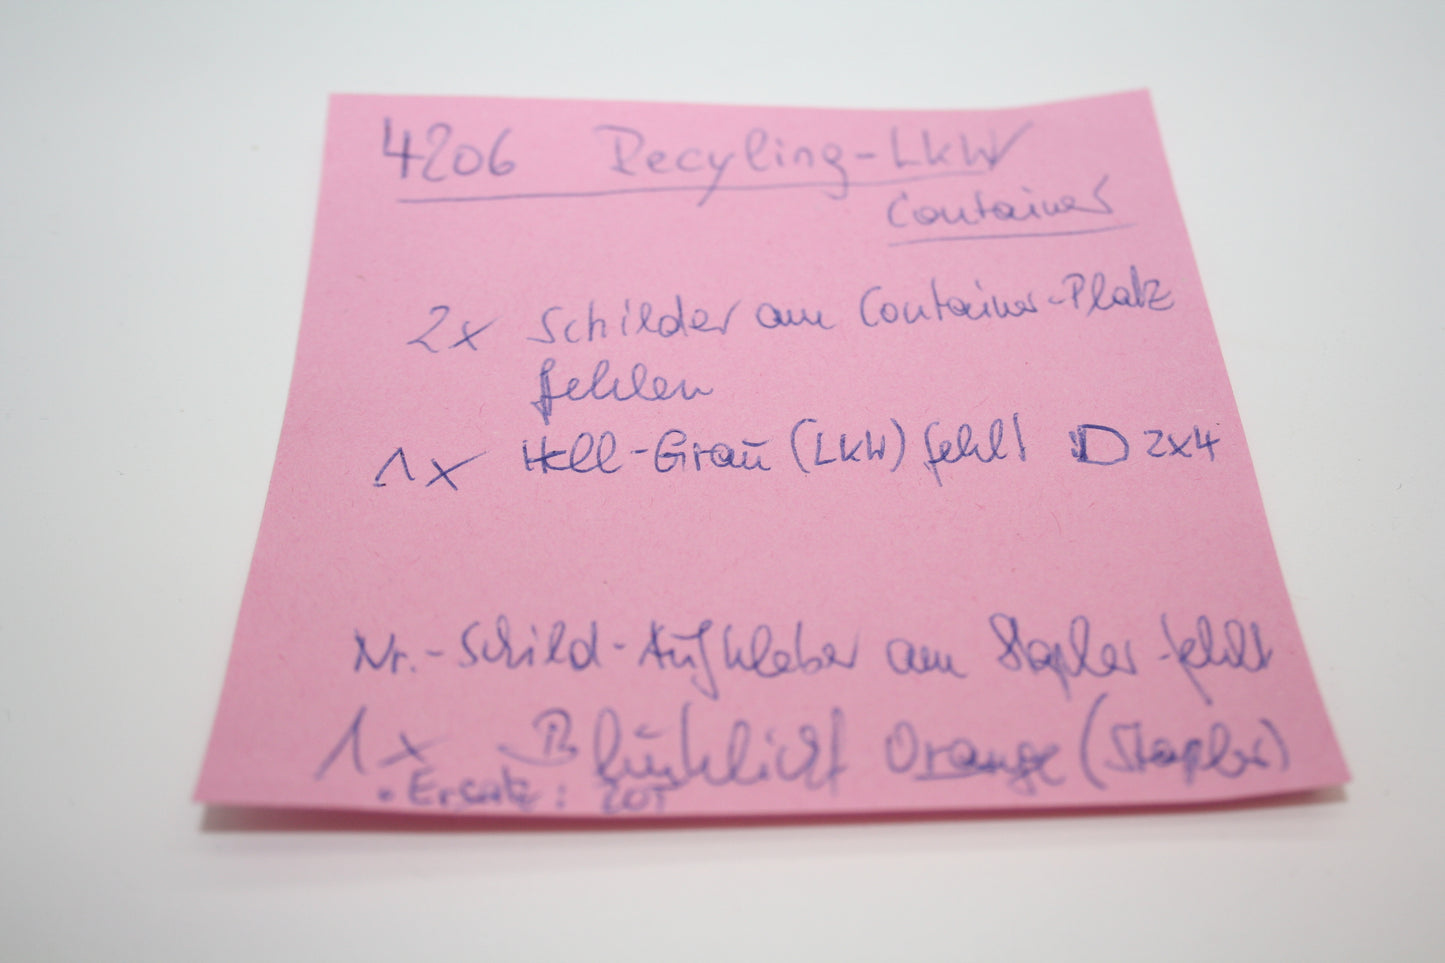 4206 Recyling-LKW
Container
2x Schilder am Container-Platz
fehlen
1x Hell-Grau (LKW) fehlt D 2x4
Nr.-Schild-Aufkleber am Stapler fehlt
1x Blinklicht Orange (Stapler)
• Ersatz: rot